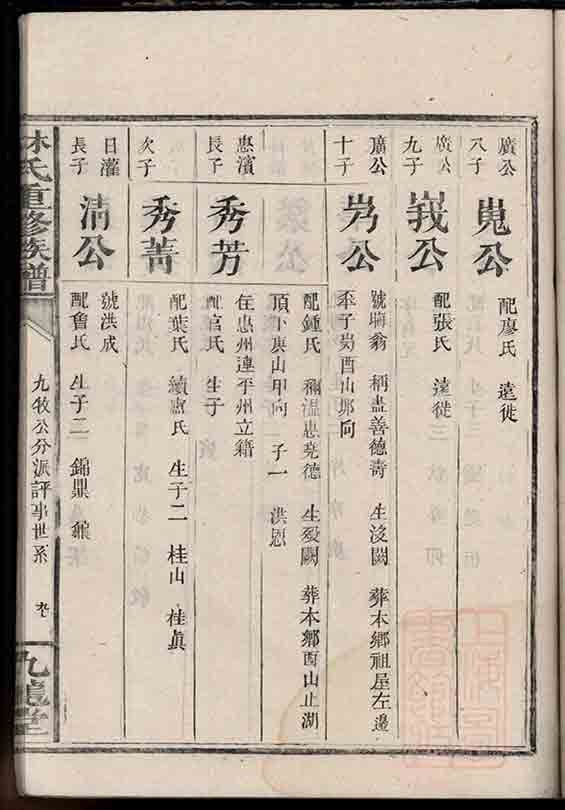 廣公
八子
嵬公
配廖氏 遠徙
廣公
九子
峩公
配張氏 遠徙
廣公
十子
岃公
號晦翁 稱盡善德壽 生沒闕 葬本鄉祖屋左邊
禾子岗酉山邜向
配鍾氏 稱溫惠堯德 生歿闕 葬本鄉酉山止湖
頂下庚山甲向 子一 洪恩
惠濱
長子
秀芳
住惠州連平州立籍
配官氏 生子
次子
秀菁
配葉氏 續甯氏 生子二 桂山 桂真
日灌
長子
清公
號洪成
配魯氏 生子二 錦鼎
林氏重修族譜
九牧公分派評事世系
九
九龍堂